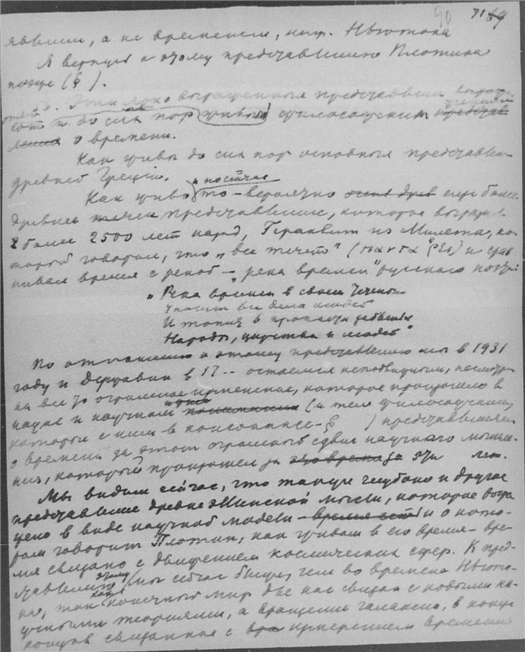 90 89
явлени, а не временем, напр. Ньютона
Я вернусь к этому представлению Плотина
позже (§ ).
до сих пор живы философским
о времени.
Как живы до сих пор основные представлен
древней Греции.
Как живо постичас то - вероятно еще более
древнее представление, которое выразил
2 более 2500 лет назад, Гераклит из Милета, ко-
торый говорил, что "все течет" (πάντα ῥεῖ) и срав
нивал время с рекой - "река времен" русского поэта:
"Река времен в своем течении
Уносит все дела людей
И топит в пропасти забвенья
Народы, царства и людей"
По отношению к этому представлению мы в 1931
году и Державин в 17.. остаемся неподвижными, несмотря
на все то огромное изменение, которое произошло в
науке и научном (и тем философским,
которые с ним в консонансе - § ) представлении
о времени за этот огромный сдвиг научного мышле-
ния, который произошел за эти лет.
Мы видим сейчас, что такую глубоко и другое
представление древне эллинской мысли, которое обра
щено в виде научной модели и о кото-
ром говорит Плотин, как живом в его время - вре-
мя связано с движением космических сфер. К пред-
ставлению этому мы сейчас ближе, чем во времена Ньюто-
на, так как конечный мир для нас связан с новыми на-
учными теориями, а вращение галаксий, в конце
концов связанное с измерением времени